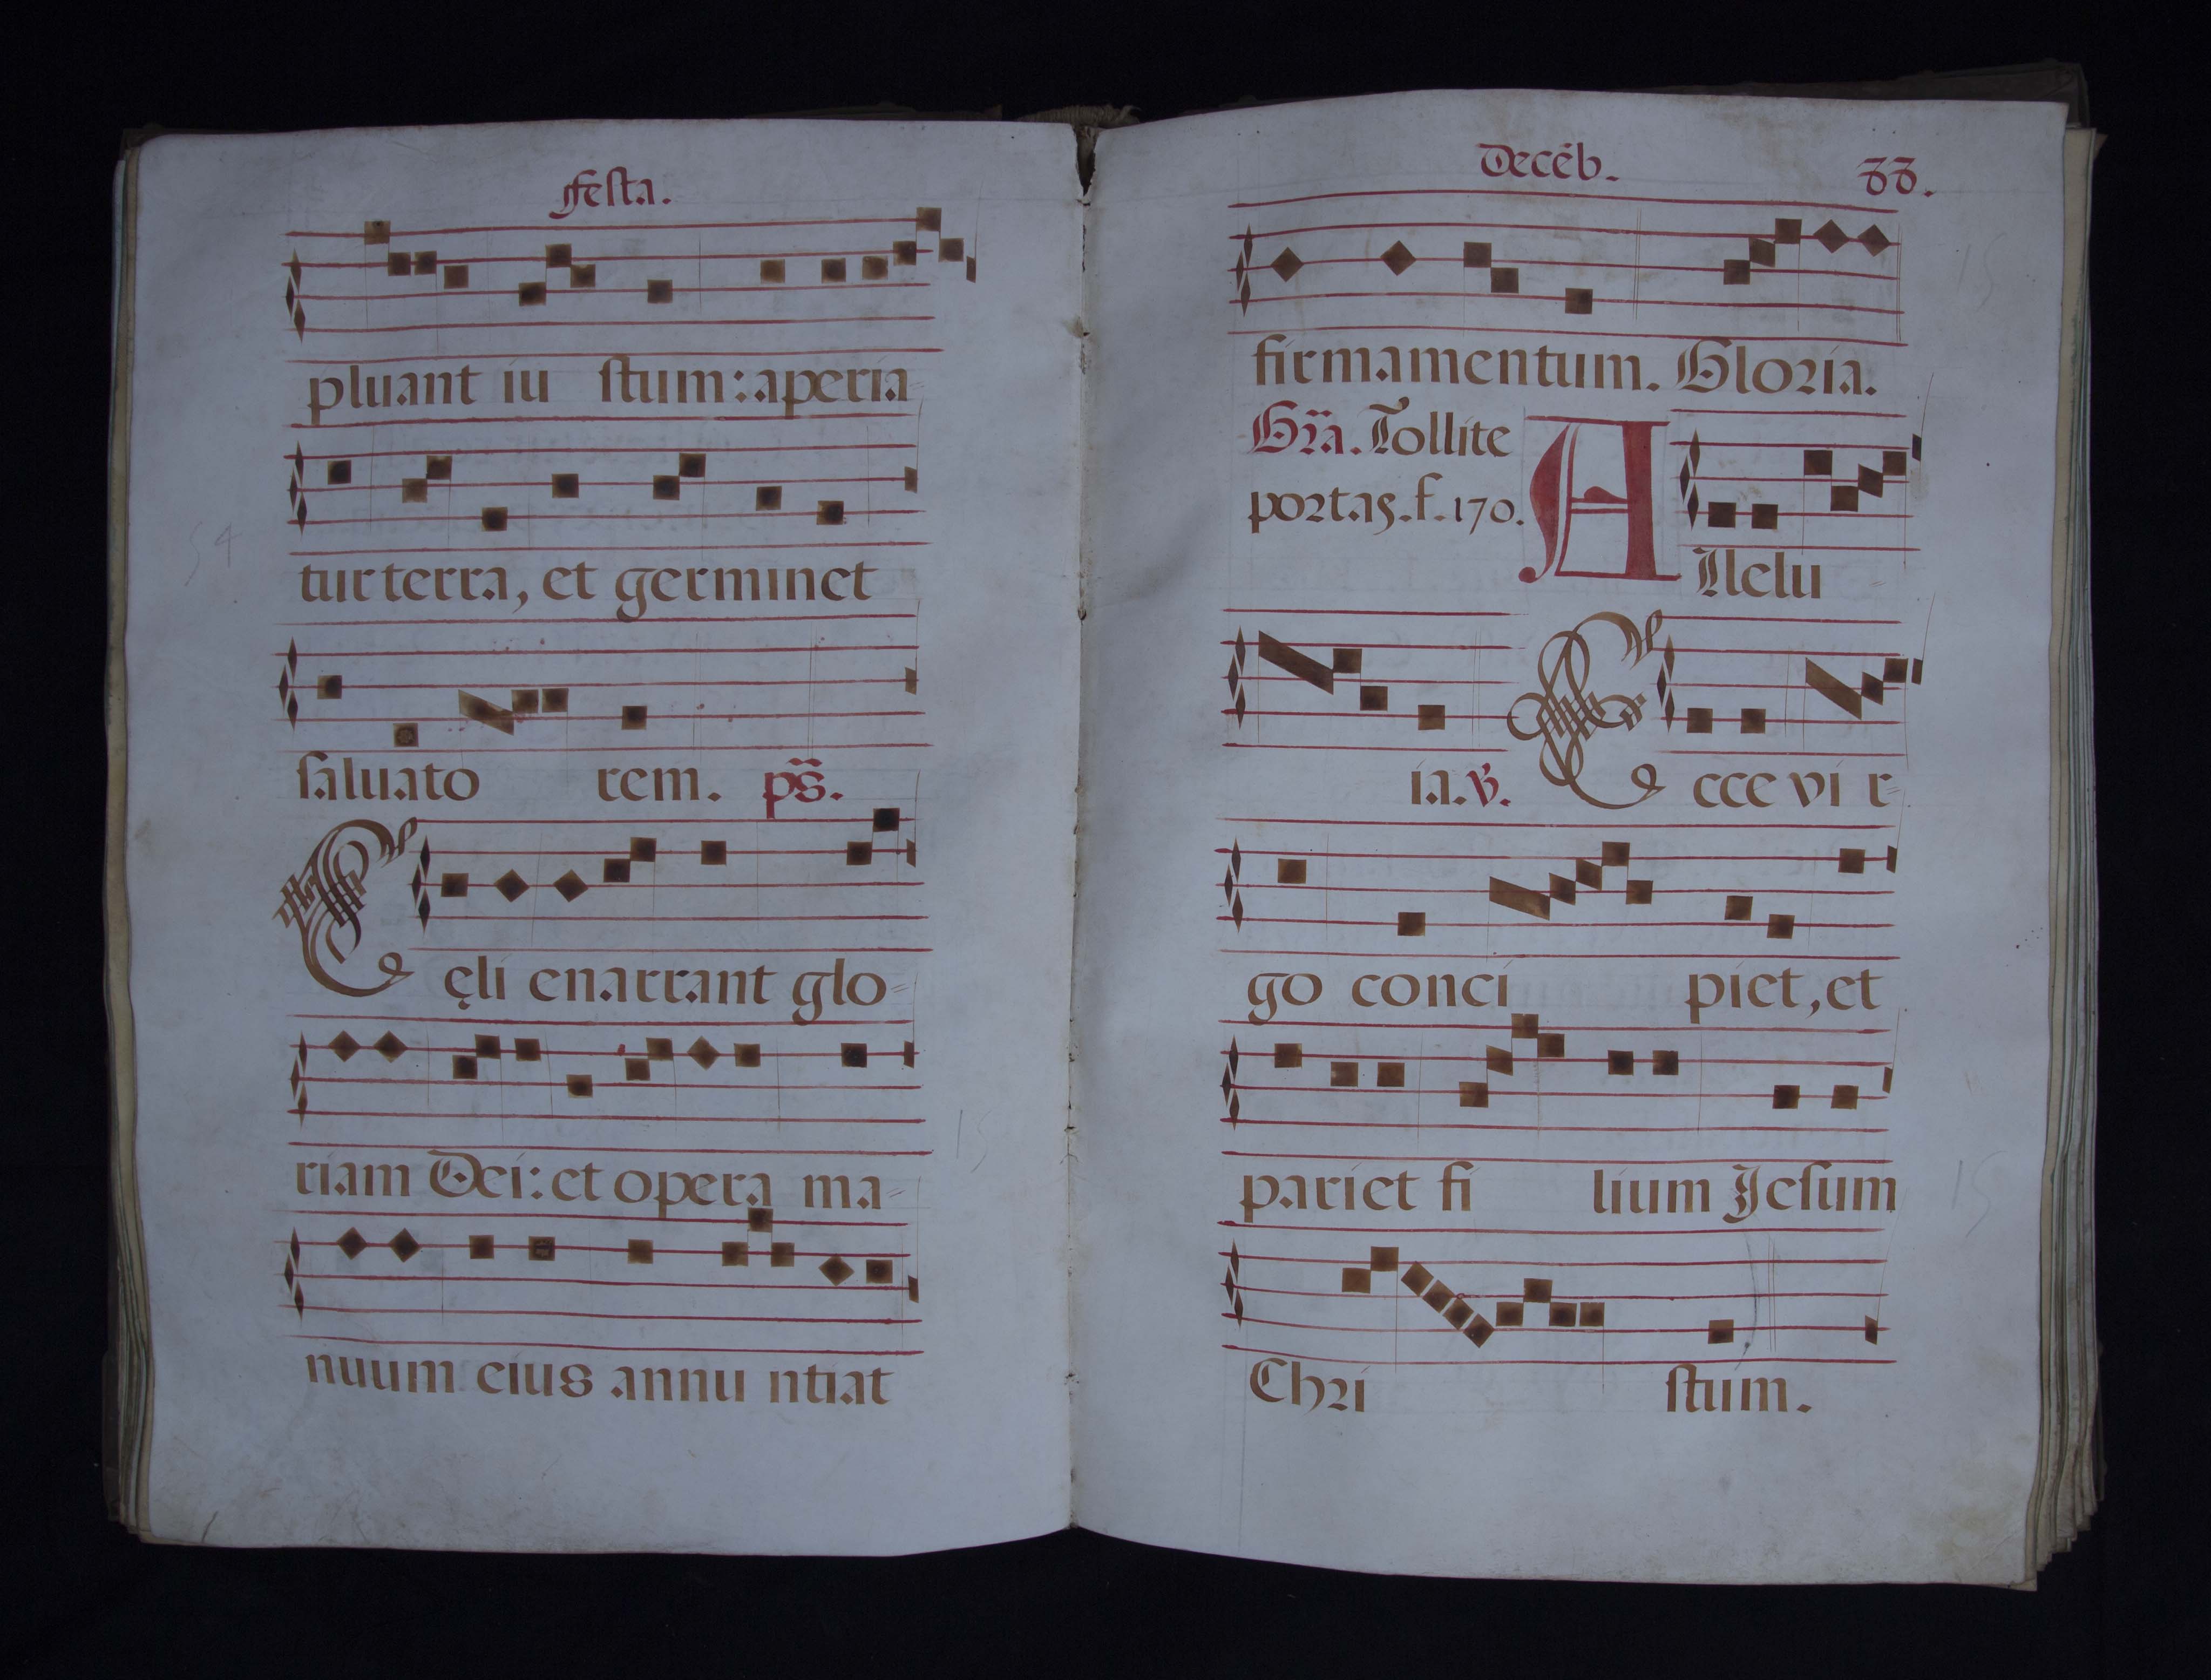 Festa.
pluant iu stum: aperia=
tur terra, et germinet
saluato rem. ps.
Cęli enarrant glo=
riam Dei: et opera ma=
nuum eius annu ntiat
Decẽb. 33.
firmamentum. Gloria.
Gra. Tollite
portas. f. 170.
Allelu
ia. V. Ecce vi r=
go conci piet, et
pariet fi lium Jesum
Chri stum.